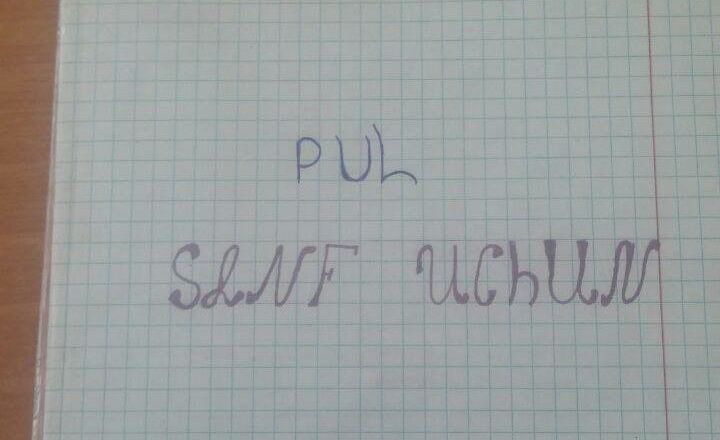 PUL
SINF UCHUN